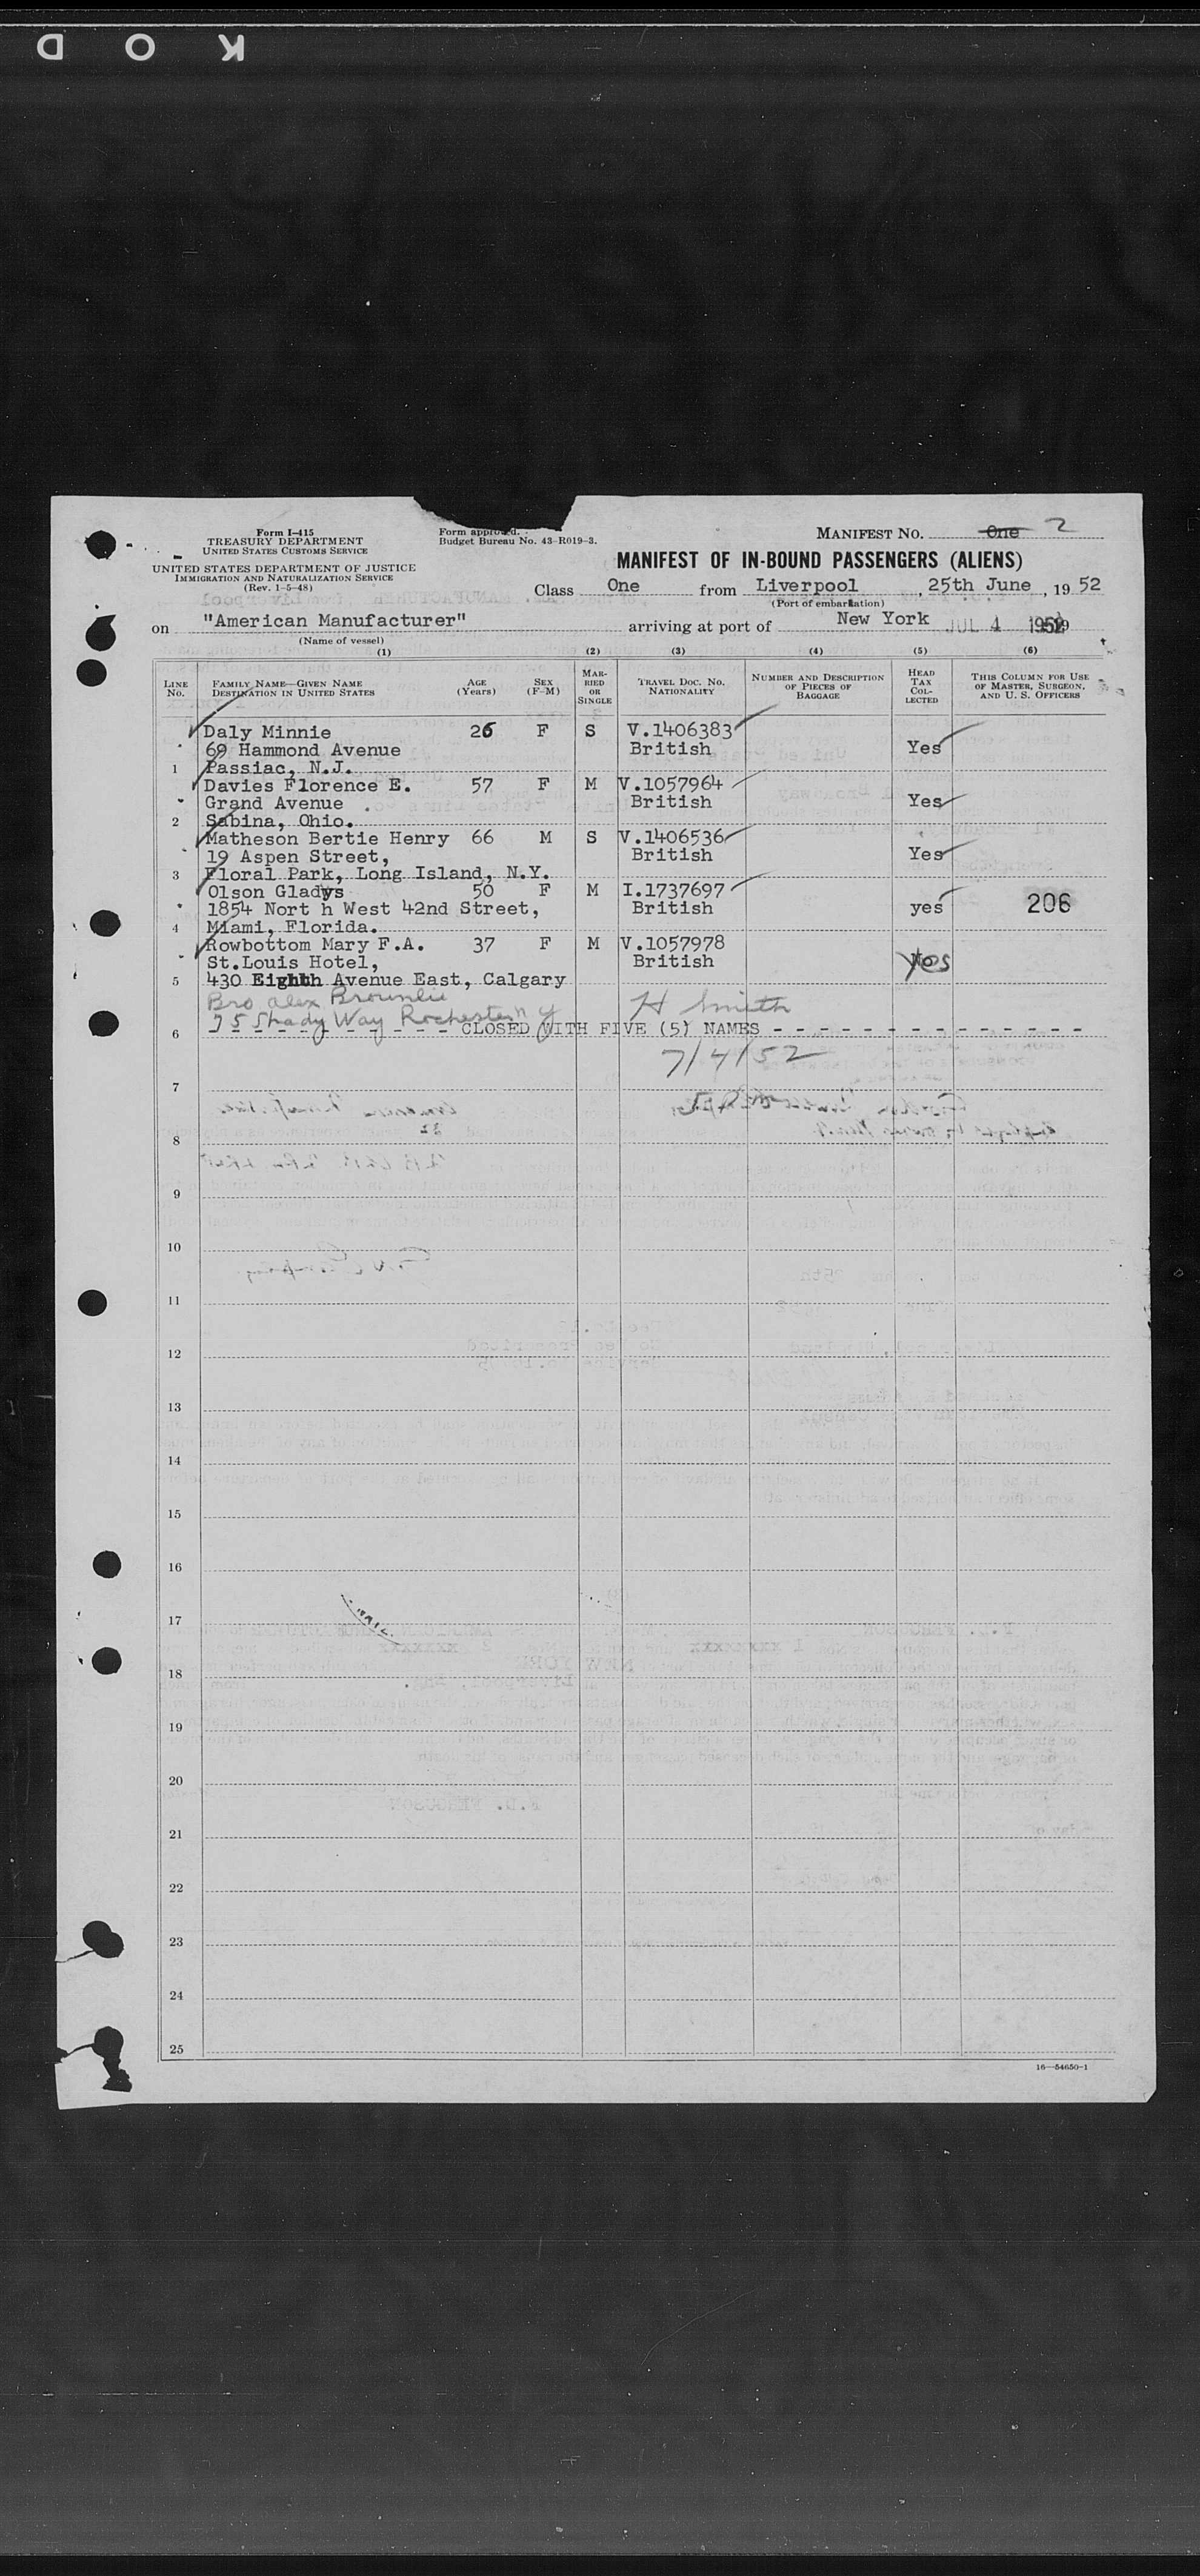 K O D
Form I-415
TREASURY DEPARTMENT
UNITED STATES CUSTOMS SERVICE
UNITED STATES DEPARTMENT OF JUSTICE
IMMIGRATION AND NATURALIZATION SERVICE
(Rev. 1-5-48)
Form approved.
Budget Bureau No. 43-R019-3.
MANIFEST NO. One 2
MANIFEST OF IN-BOUND PASSENGERS (ALIENS)
Class One from Liverpool, 25th June, 1952
(Port of embarkation)
on "American Manufacturer" arriving at port of New York JUL 4 1952
(Name of vessel)
(1) (2) (3) (4) (5) (6)
LINE No. FAMILY NAME—GIVEN NAME DESTINATION IN UNITED STATES AGE (Years) SEX (F-M) MARRIED OR SINGLE TRAVEL DOC. NO. NATIONALITY NUMBER AND DESCRIPTION OF PIECES OF BAGGAGE HEAD TAX COLLECTED THIS COLUMN FOR USE OF MASTER, SURGEON, AND U. S. OFFICERS
Daly Minnie 26 F S V.1406383
69 Hammond Avenue British Yes
1 Passiac, N.J.
Davies Florence E. 57 F M V.1057964
Grand Avenue British Yes
2 Sabina, Ohio.
Matheson Bertie Henry 66 M S V.1406536
19 Aspen Street, British Yes
3 Floral Park, Long Island, N.Y.
Olson Gladys 50 F M I.1737697
1854 Nort h West 42nd Street, British yes 206
4 Miami, Florida.
Rowbottom Mary F.A. 37 F M V.1057978
St.Louis Hotel, British yes
5 430 Eighth Avenue East, Calgary
Bro alex Brownlie H Smith
75 Shady Way Rochester n y
6 - - - - - - - - - CLOSED WITH FIVE (5) NAMES - - - - - - - - - - - - - - - -
7/4/52
7
8
9
10
11
12
13
14
15
16
17
18
19
20
21
22
23
24
25
16—54650-1